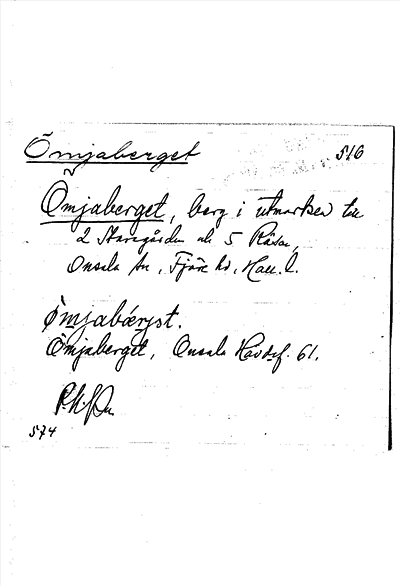 Ömjaberget 516
Ömjaberget, berg i utmarken till
2 Staragården och 5 Råsa,
Onsala sn, Fjäre hd, Hall. l.
Ömjabǽrjət.
Ömjaberget, Onsala Havdsf. 61.
574